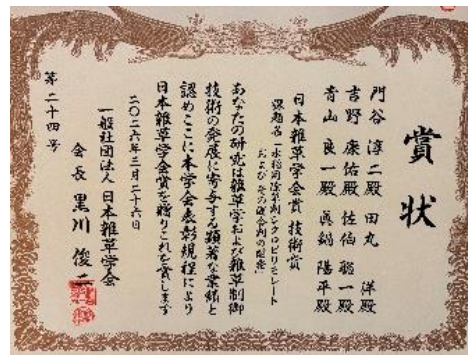 賞状
門谷 淳二殿 田丸 洋殿
吉野 康佑殿 佐伯 聡一殿
青山 良一殿 眞鍋 陽平殿
日本雑草学会賞 技術賞
課題名「水稲用除草剤シクロピリモレート
および その混合剤の開発」
あなたの研究は雑草学および雑草制御
技術の発展に寄与する顕著な業績と
認めここに本学会表彰規程により
日本雑草学会賞を贈りこれを賞します
二〇二六年三月二十六日
一般社団法人 日本雑草学会
会長 黒川 俊二
第二十四号